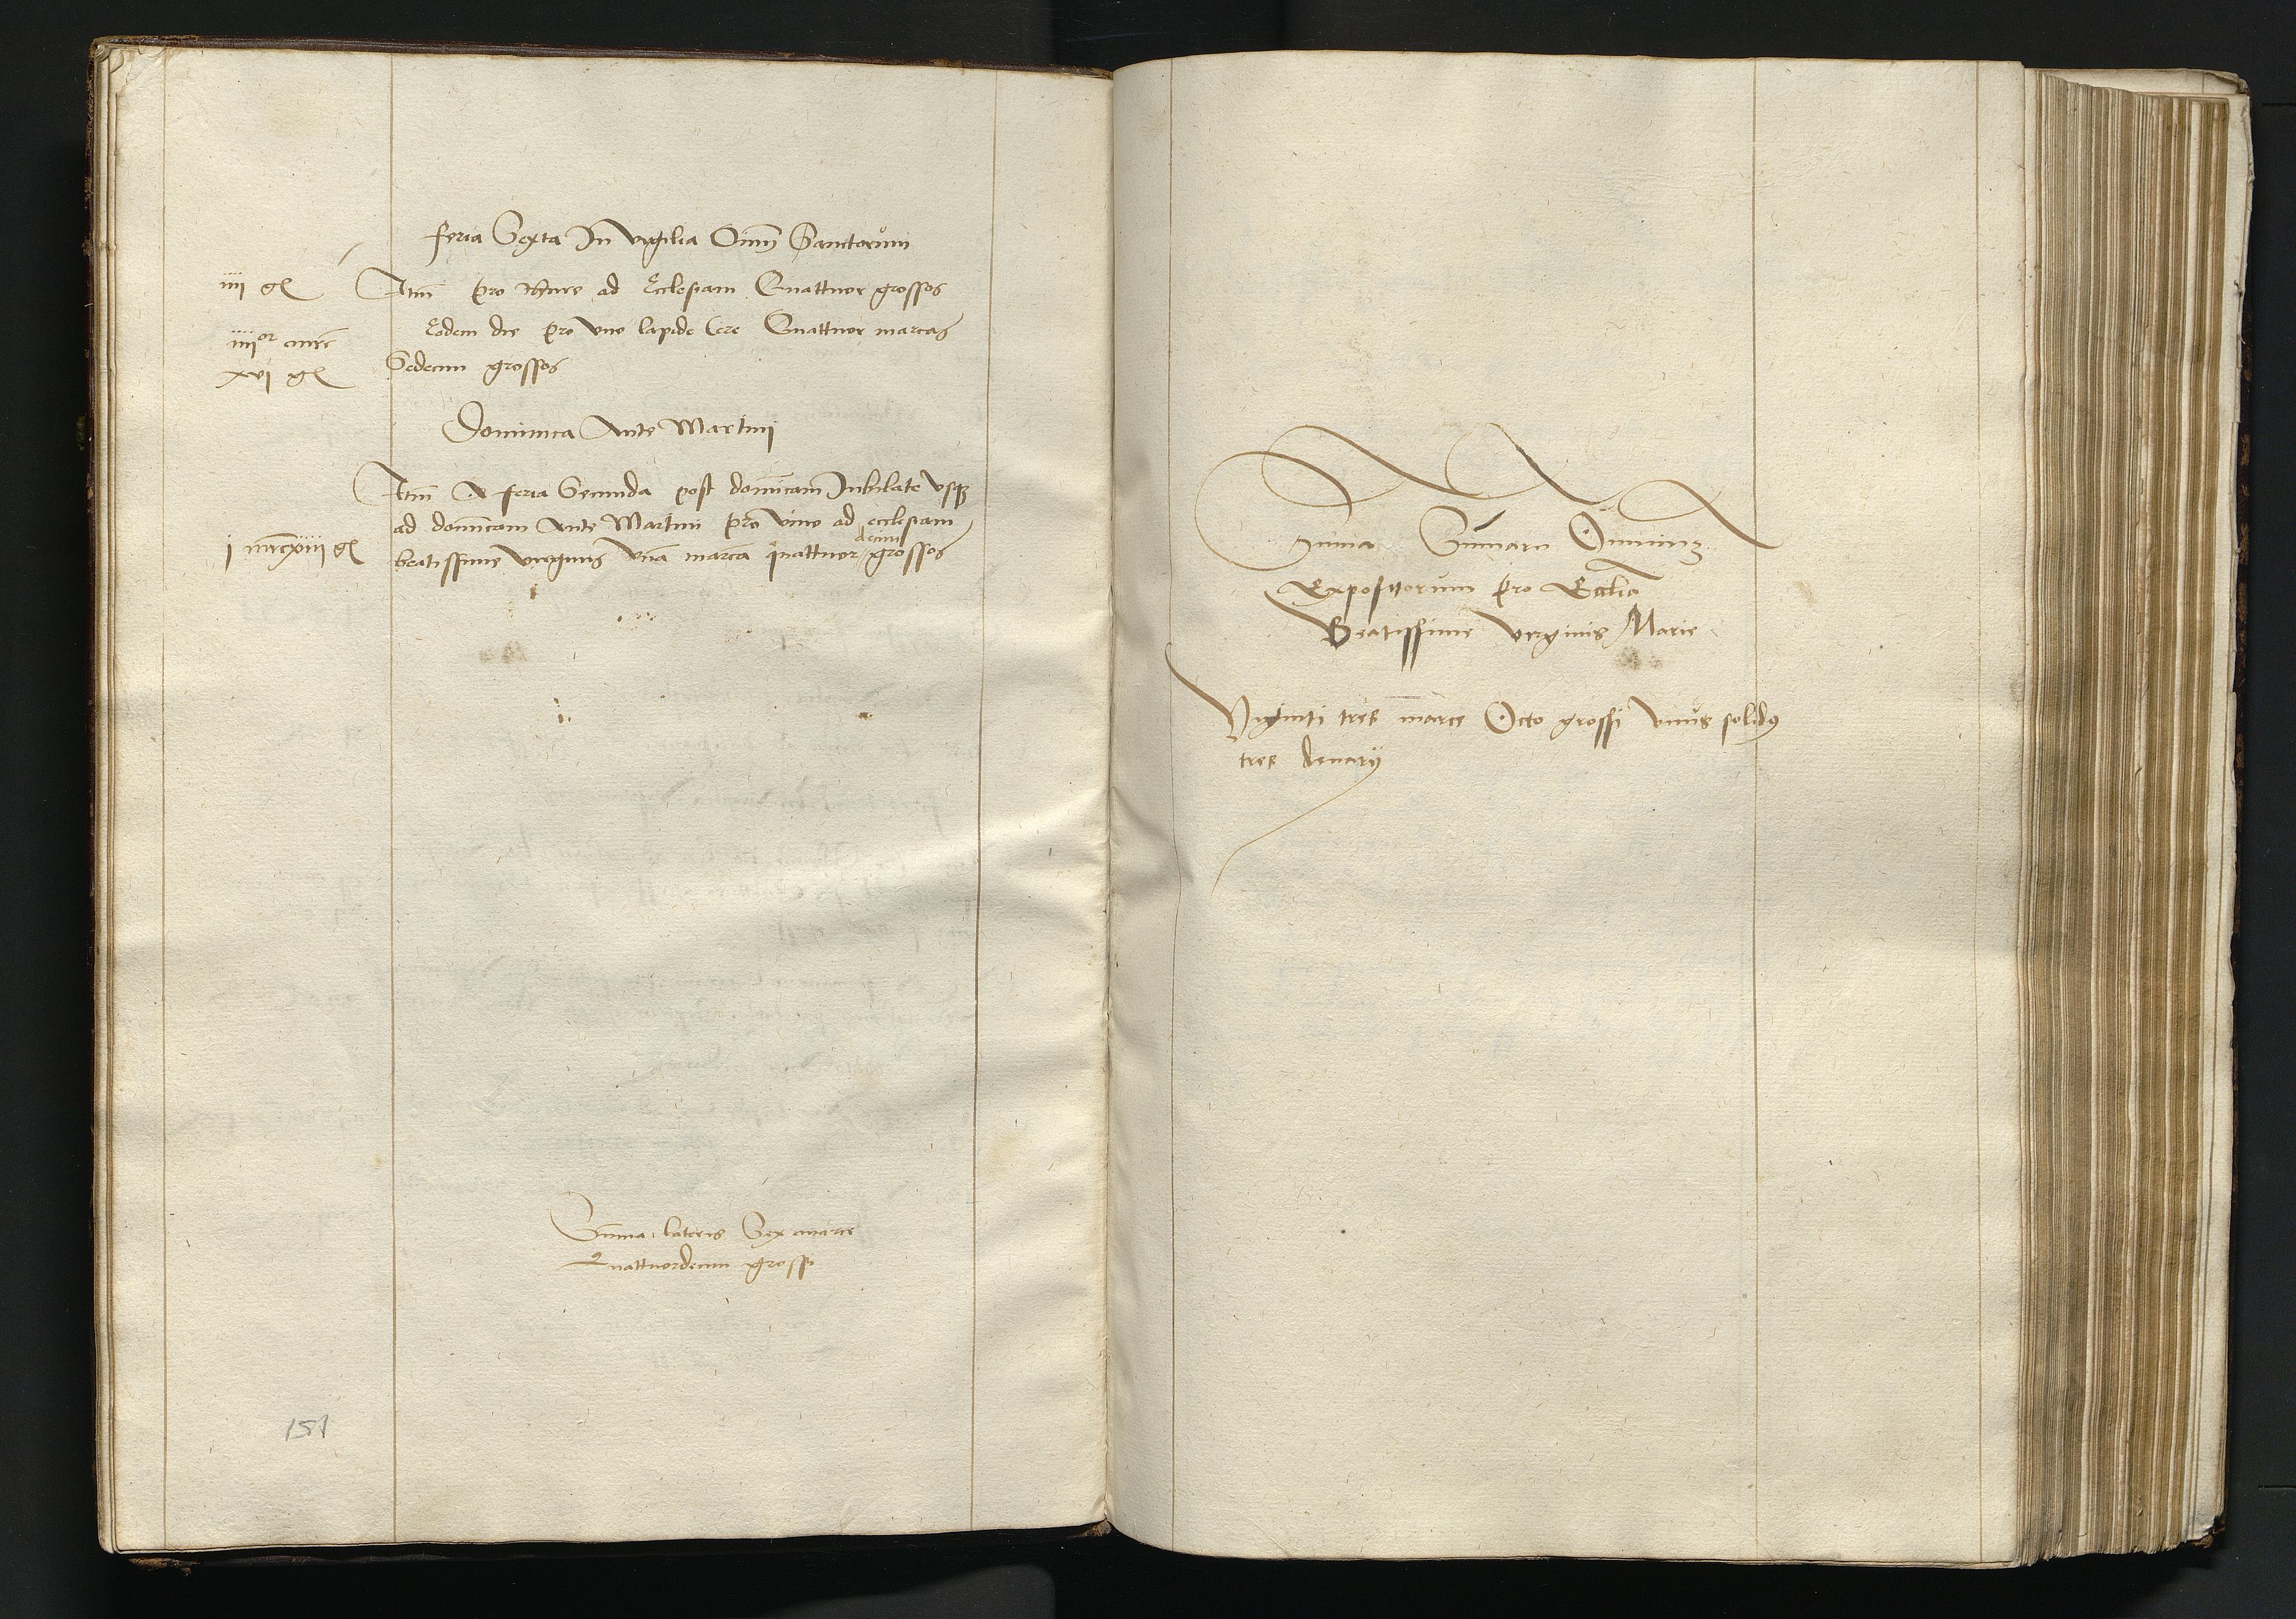 feria Sexta In vigilia Om̄ Sanctorum
iiii gͬ Itm̄ pro thure ad Ecclesiam Quattuor grossos
iiiiᵒʳ mrc̄ Eodem die pro vno lapide Cere Quattuor marcas
xvi gͬ Sedecim grossos
Dominica Ante Martini
Itm̄ A feria Secunda post domīcam Iubilate vsqꝫ
ad domīcam Ante Martini pro vino ad ecclesiam
decim
i mrc̄ xiiii gͬ beatissime virginis vnā marcā quattuor grossos
Sūma lateris Sex marce
Quattuordecim grossi
151
Sūma Sūmarū Omniuꝫ
Expositorum pro Ecclīa
Beatissime virginis Marie
Viginti tres marce Octo grossi vnus solidꝰ
tres denarij